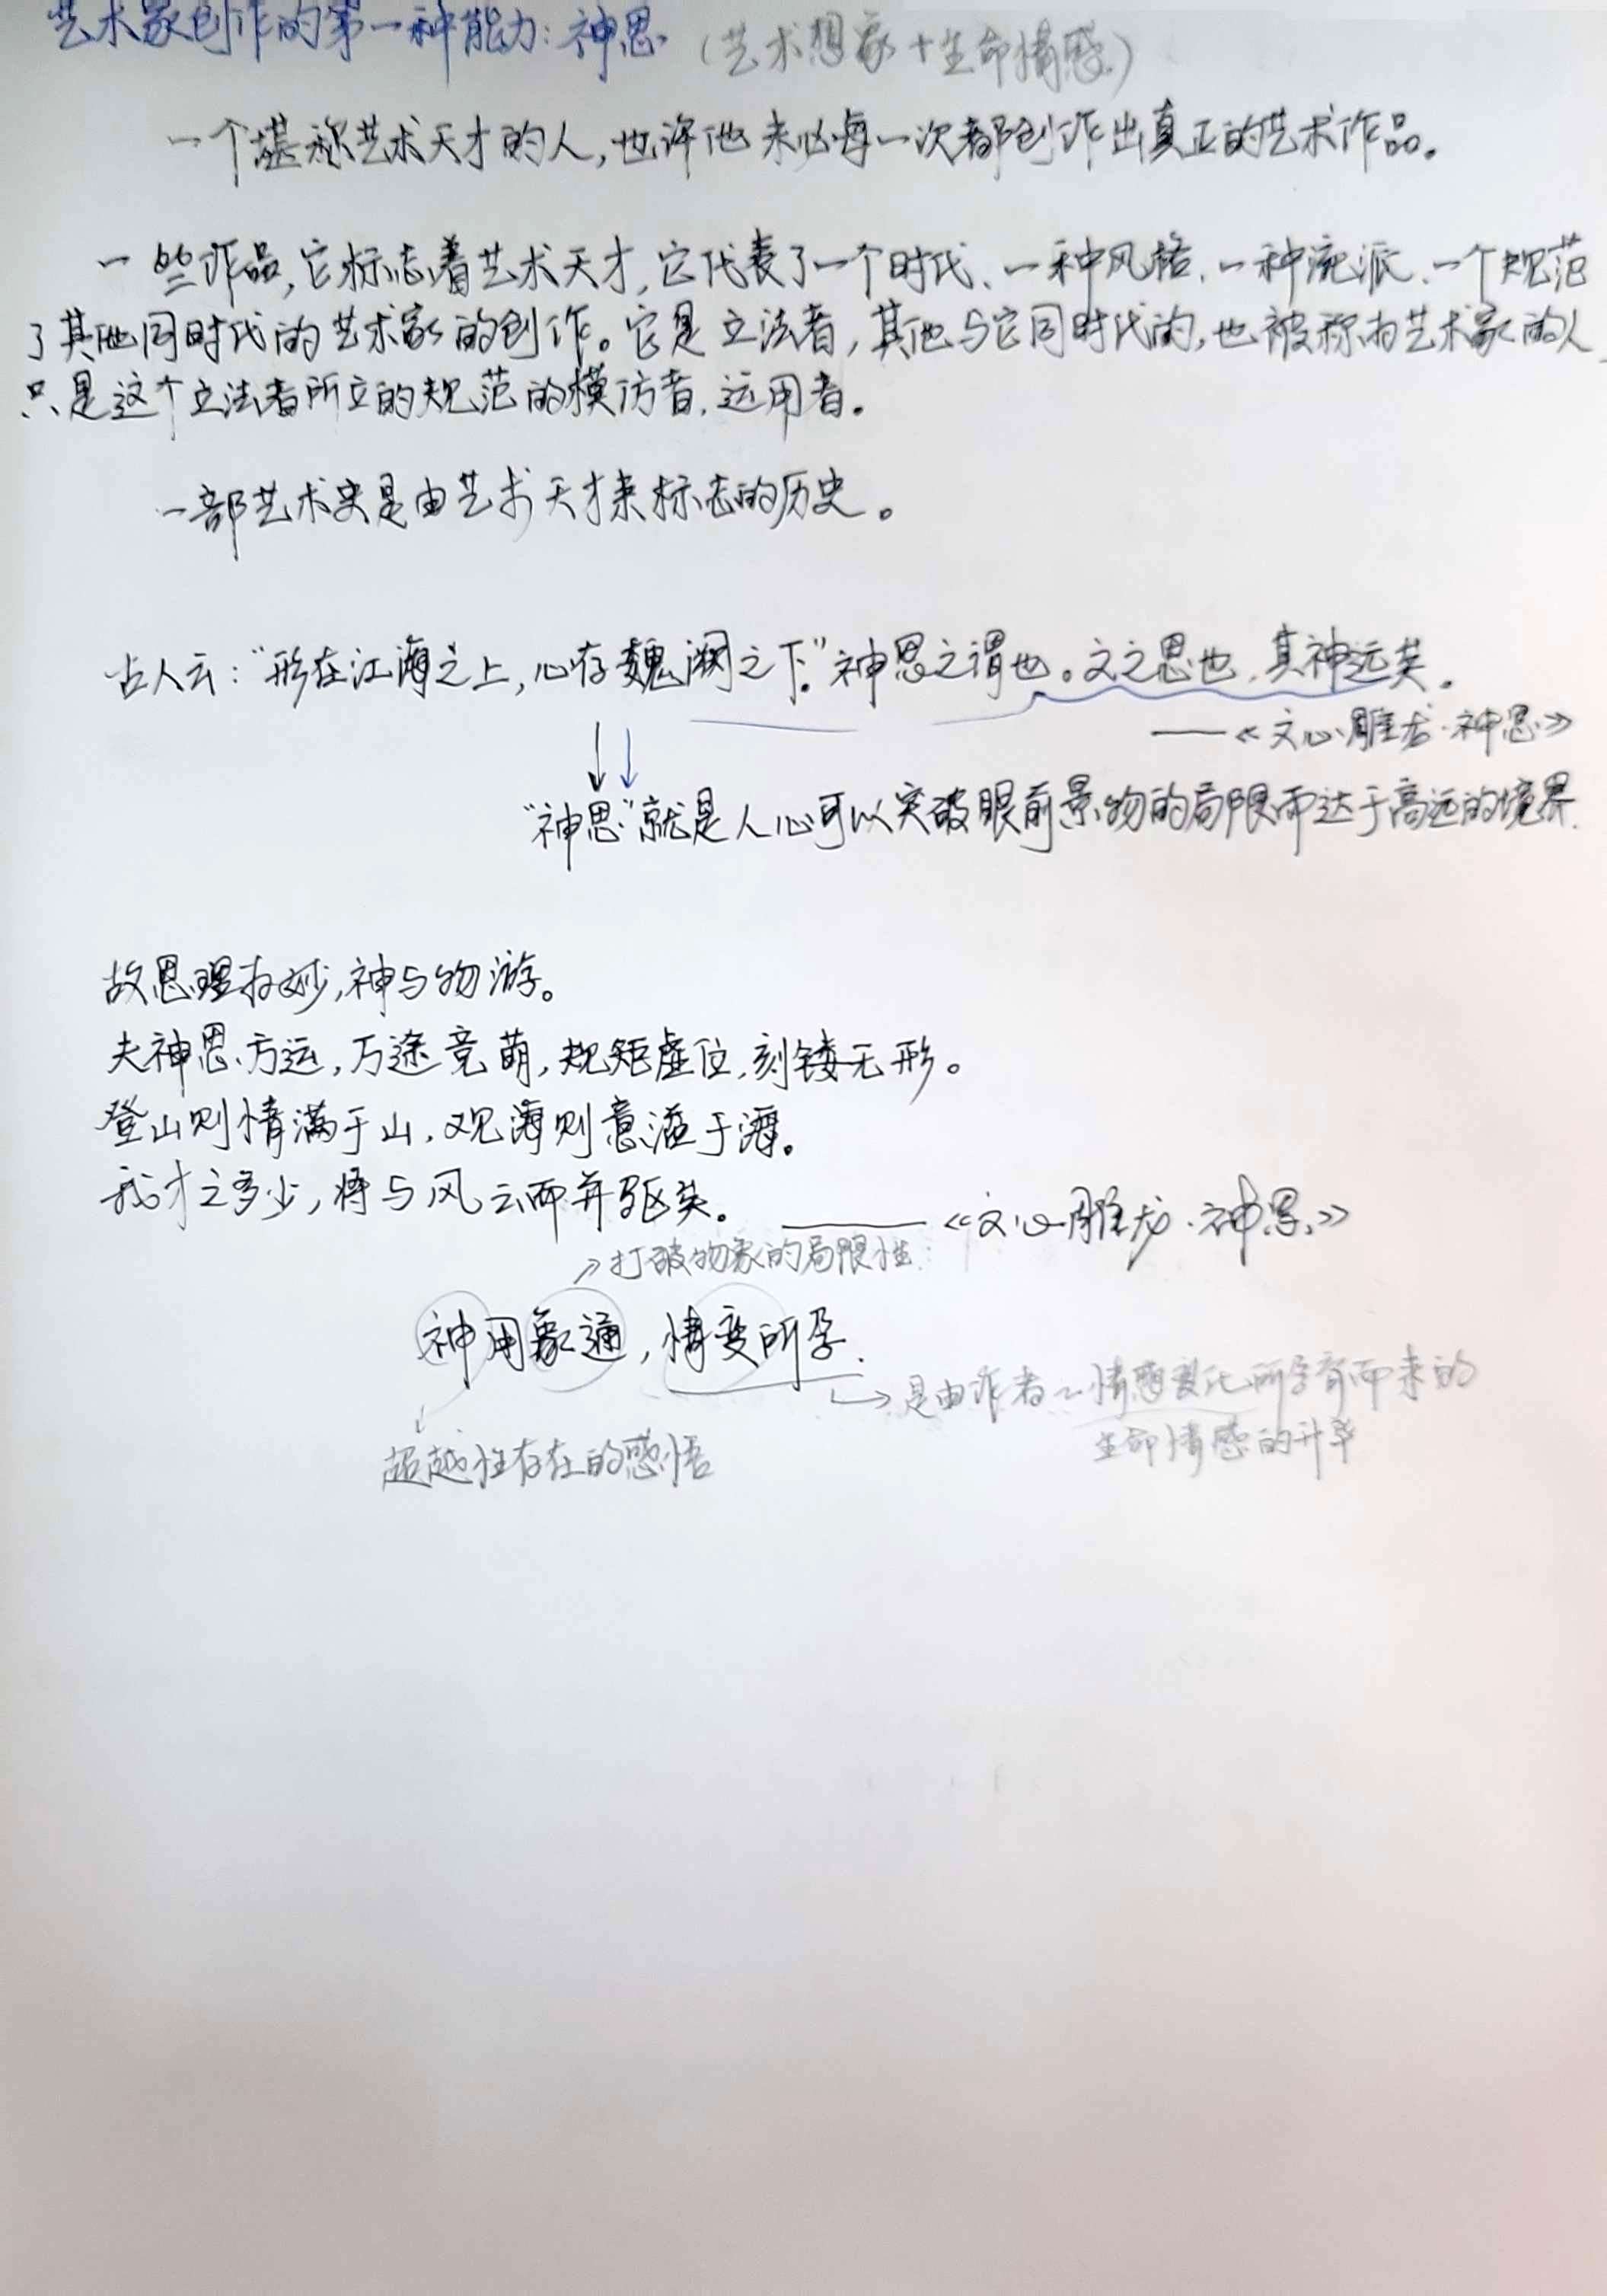 艺术家创作的第一种能力：神思（艺术想象+生命情感）
一个堪称艺术天才的人，也许他未必每一次都创作出真正的艺术作品。
一些作品，它标志着艺术天才，它代表了一个时代、一种风格、一种流派、一个规范
了其他同时代的艺术家的创作。它是立法者，其他与它同时代的，也被称为艺术家的人，
只是这个立法者所立的规范的模仿者、运用者。
一部艺术史是由艺术天才来标志的历史。
古人云：“形在江海之上，心存魏阙之下。”神思之谓也。文之思也，其神远矣。
——《文心雕龙·神思》
“神思”就是人心可以突破眼前景物的局限而达于高远的境界.
故思理为妙，神与物游。
夫神思方运，万途竞萌，规矩虚位，刻镂无形。
登山则情满于山，观海则意溢于海。
我才之多少，将与风云而并驱矣。
——《文心雕龙·神思》
打破物象的局限性.
神用象通，情变所孕.
是由作者~情感变化所孕育而来的
生命情感的升华
超越性存在的感悟